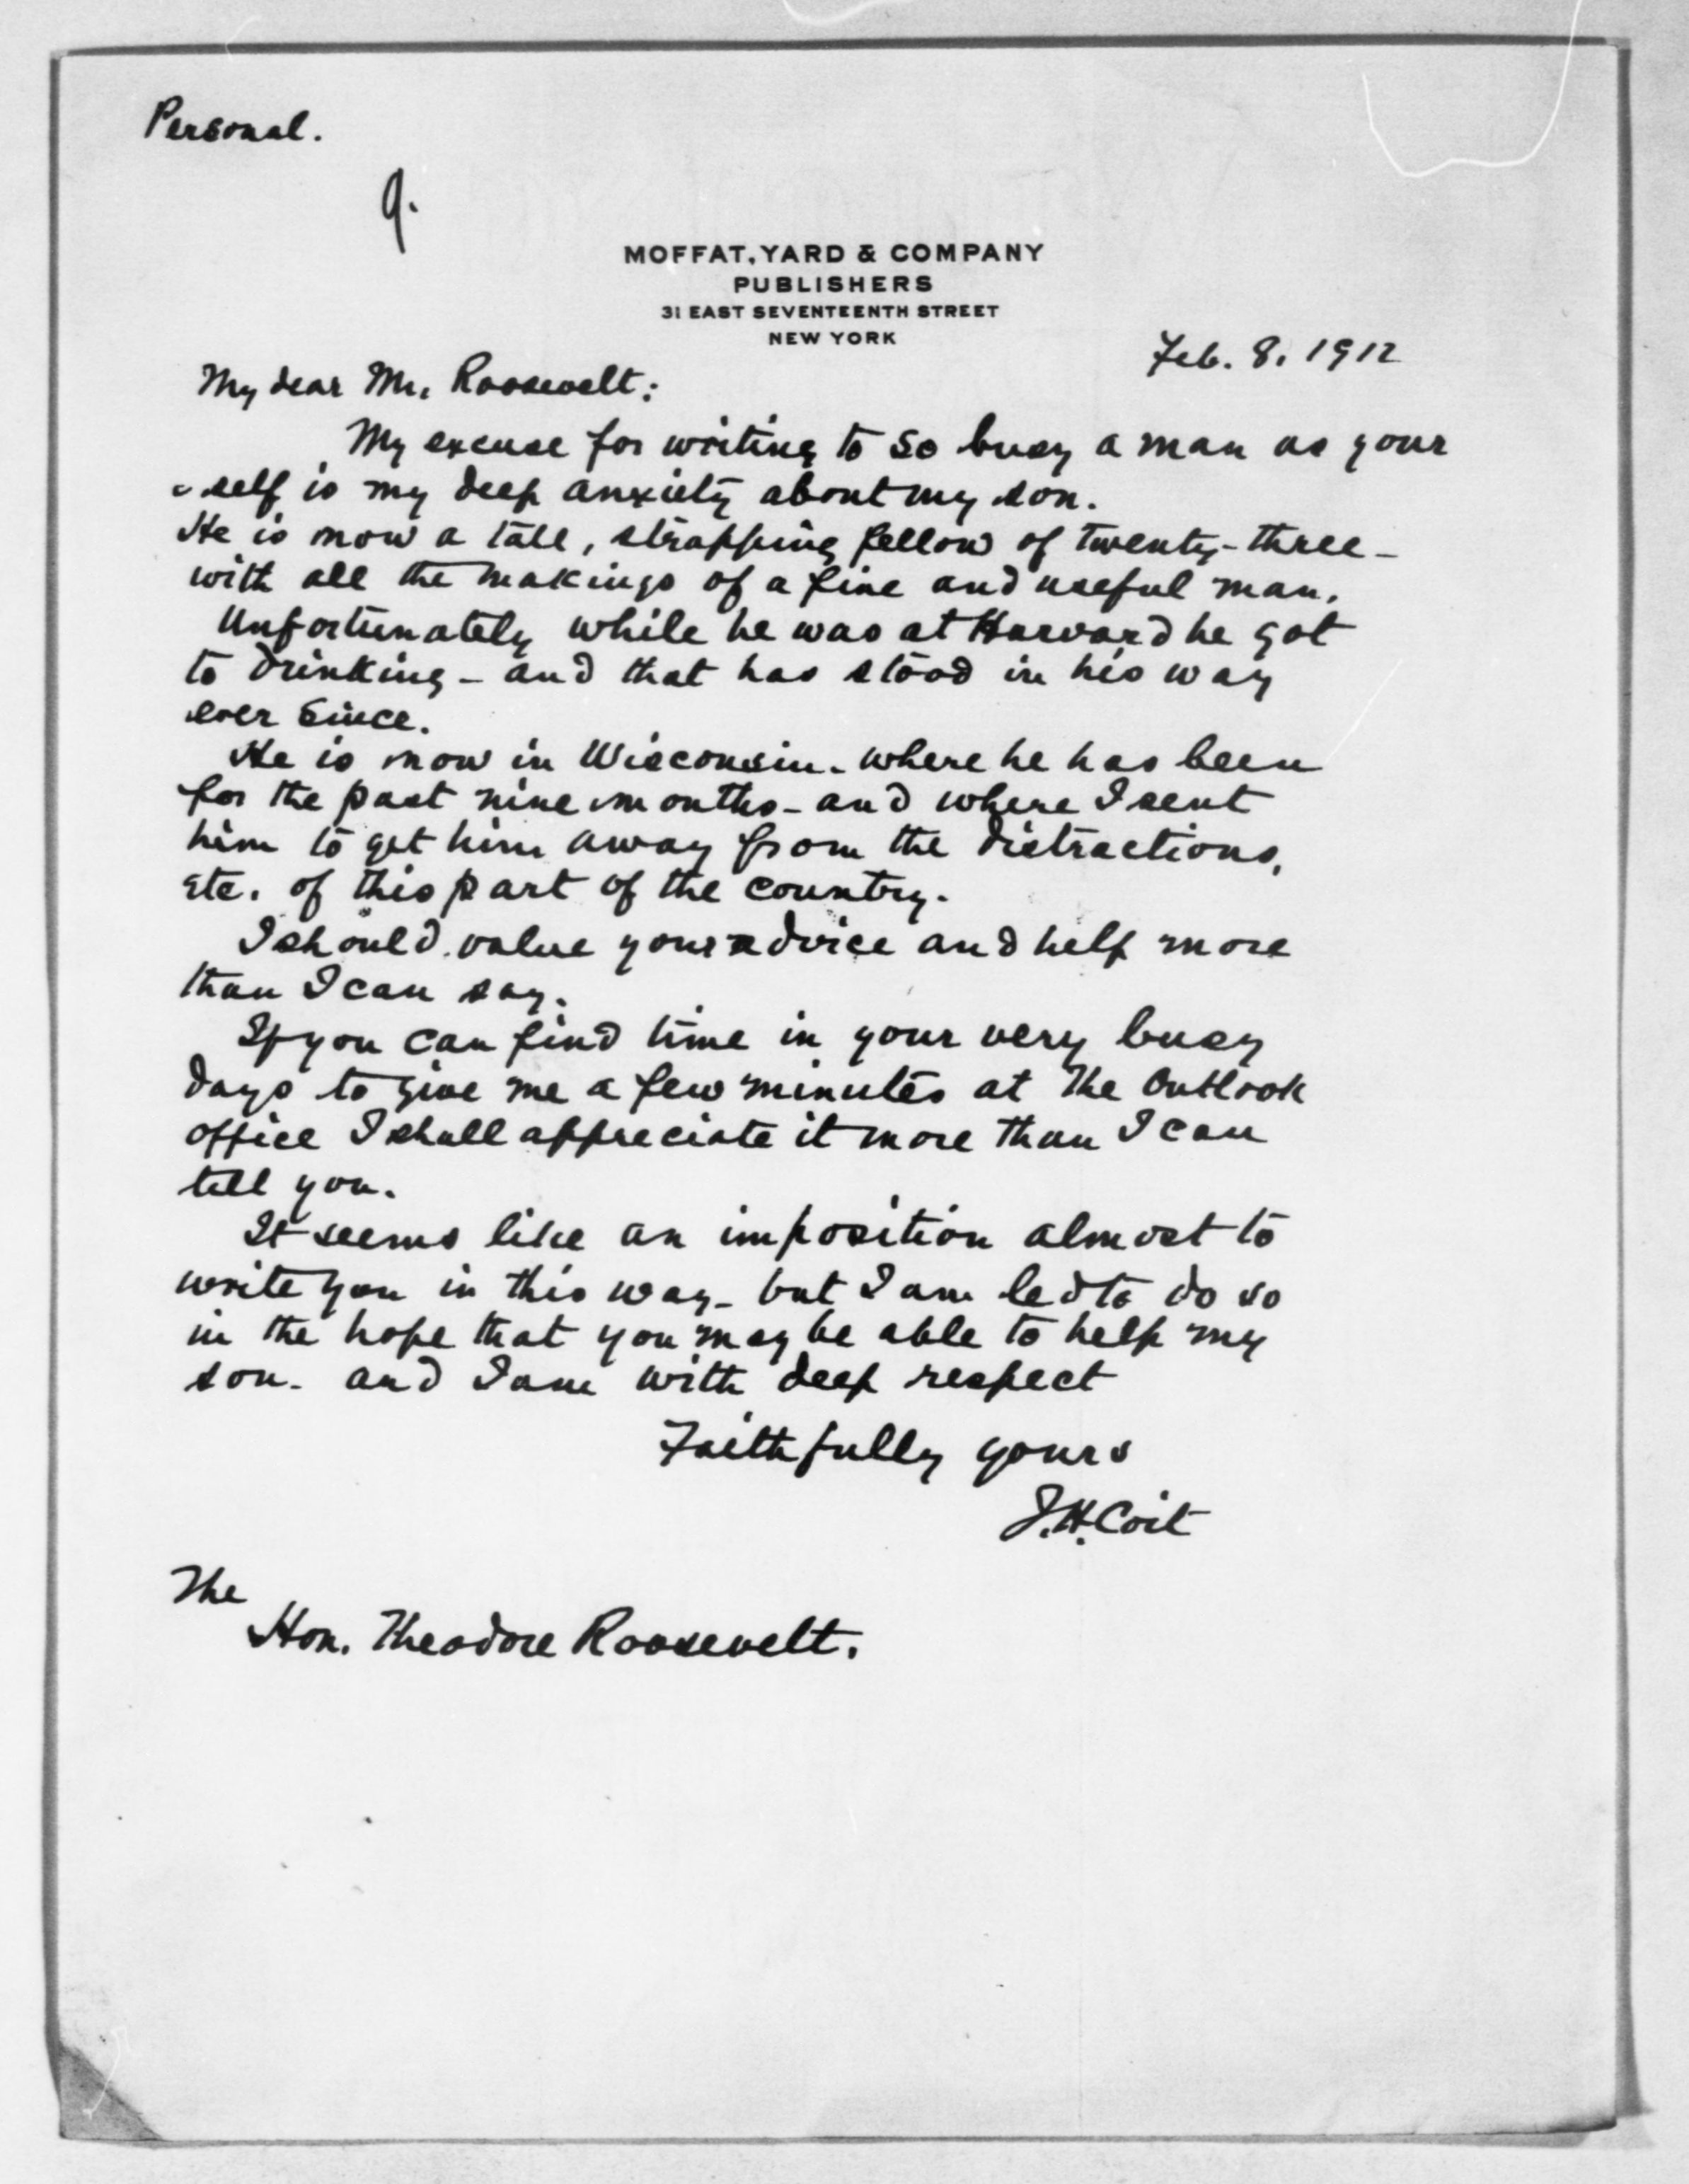 Personal.
9.
MOFFAT, YARD & COMPANY
PUBLISHERS
31 EAST SEVENTEENTH STREET
NEW YORK
Feb. 8. 1912
My dear Mr. Roosevelt:
My excuse for writing to so busy a man as your
-self is my deep anxiety about my son.
He is now a tall, strapping fellow of twenty-three-
with all the makings of a fine and useful man.
Unfortunately while he was at Harvard he got
to drinking - and that has stood in his way
ever since.
He is now in Wisconsin - where he has been
for the past nine months - and where I sent
him to get him away from the distractions,
etc. of this part of the country.
I should value your advice and help more
than I can say.
If you can find time in your very busy
days to give me a few minutes at The Outlook
office I shall appreciate it more than I can
tell you.
It seems like an imposition almost to
write you in this way - but I am led to do so
in the hope that you may be able to help my
son - and I am with deep respect
Faithfully yours
J.H. Coit
The
Hon. Theodore Roosevelt.